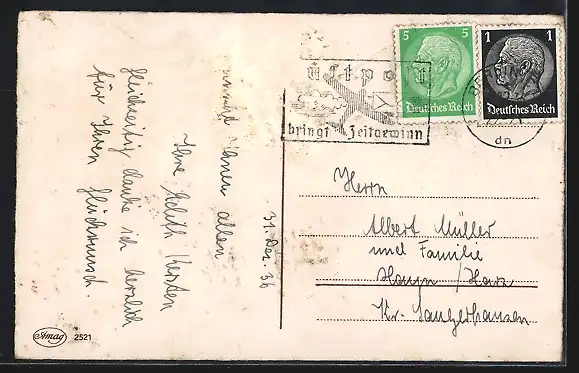 wünscht Ihnen allen
Ihre Edith Kersten
Gleichzeitig danke ich herzlich
für Ihren Glückwunsch.
31. Dez. 36
Luftpost
bringt Zeitgewinn
5 5
Deutsches Reich
1
Deutsches Reich
BERLIN
dn
Herrn
Albert Müller
und Familie
Hayn / Harz
Kr. Sangerhausen
Amag 2521